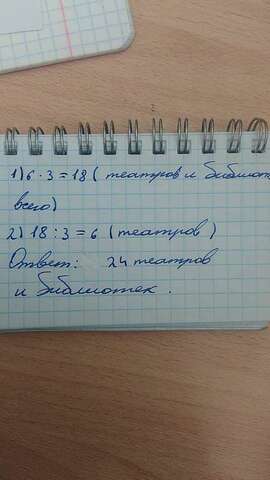 1) 6 · 3 = 18 ( театров и библиоте
всего)
2) 18 : 3 = 6 (театров)
Ответ: 24 театров
и библиотек.